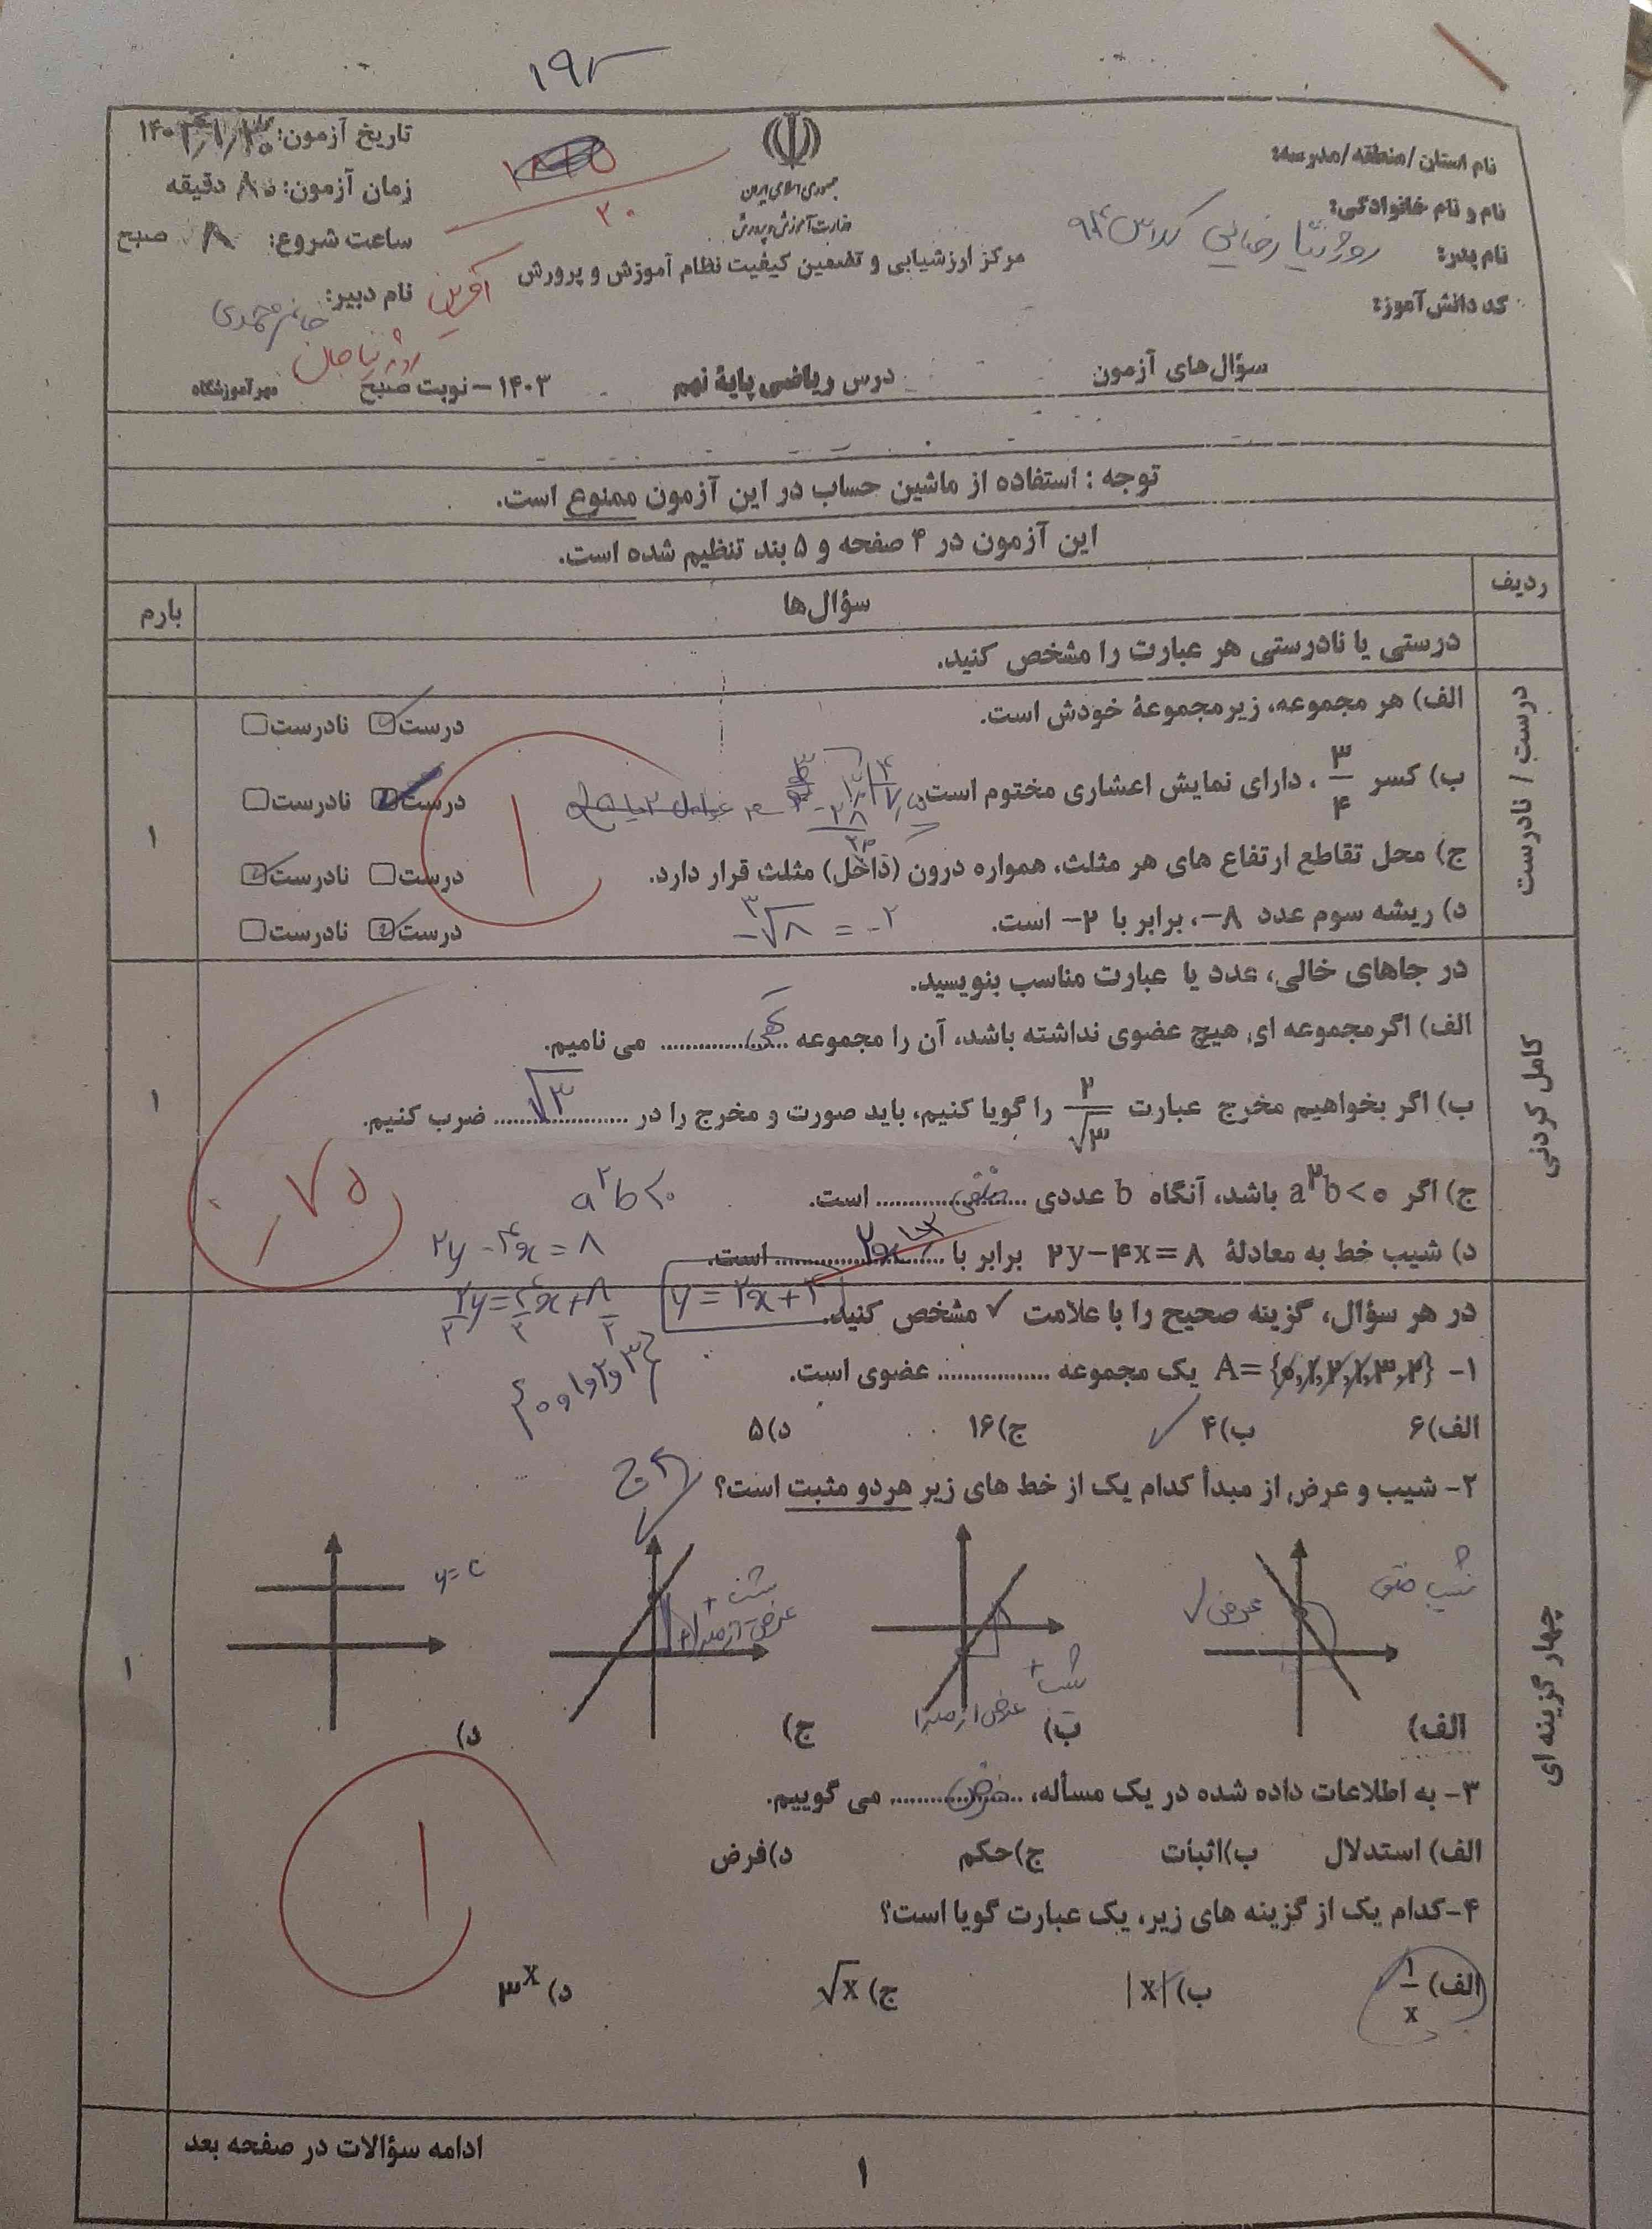 نام استان/منطقه/مدرسه:
نام و نام خانوادگی: روژینا رضایی کلاس ۹/۴
نام پدر:
کد دانش‌آموز:
جمهوری اسلامی ایران
وزارت آموزش و پرورش
مرکز ارزشیابی و تضمین کیفیت نظام آموزش و پرورش
۲۰
تاریخ آزمون:
زمان آزمون: ۸۰ دقیقه
ساعت شروع: ۸ صبح
نام دبیر: خانم محمدی
آفرین
روژینا جان
سؤال‌های آزمون
درس ریاضی پایۀ نهم
۱۴۰۳ – نوبت صبح
مهر آموزشگاه
توجه : استفاده از ماشین حساب در این آزمون ممنوع است.
این آزمون در ۴ صفحه و ۵ بند تنظیم شده است.
ردیف
سؤال‌ها
بارم
درست / نادرست
درستی یا نادرستی هر عبارت را مشخص کنید.
الف) هر مجموعه، زیرمجموعۀ خودش است. درست نادرست
ب) کسر ۳/۴ ، دارای نمایش اعشاری مختوم است درست نادرست
ج) محل تقاطع ارتفاع های هر مثلث، همواره درون (داخل) مثلث قرار دارد. درست نادرست
د) ریشه سوم عدد ۸−، برابر با ۲− است. درست نادرست
-∛۸ = -۲
۱
۱
کامل کردنی
در جاهای خالی، عدد یا عبارت مناسب بنویسید.
الف) اگرمجموعه ای هیچ عضوی نداشته باشد، آن را مجموعه تهی می نامیم.
ب) اگر بخواهیم مخرج عبارت ۲/√۳ را گویا کنیم، باید صورت و مخرج را در √۳ ضرب کنیم.
ج) اگر a²b<۰ باشد، آنگاه b عددی منفی است.
a²b<۰
د) شیب خط به معادلۀ ۲y−۴x=۸ برابر با ۲x است.
۲y-۴x=۸
۲y/۲=۴x/۲+۸/۲
y=۲x+۴
۱
۰/۷۵
چهار گزینه ای
در هر سؤال، گزینه صحیح را با علامت ✓ مشخص کنید.
۱- A={۰,۱,۲,۱,۳,۲} یک مجموعه ................ عضوی است.
{۰,۱,۲,۳}
الف)۶ ب)۴ ✓ ج)۱۶ د)۵
۲- شیب و عرض از مبدأ کدام یک از خط های زیر هردو مثبت است؟
شیب منفی
عرض ✓
شیب +
عرض از مبدا
شیب +
عرض از مبدا +
y=c
الف) ب) ج) د)
۳- به اطلاعات داده شده در یک مسأله، فرض می گوییم.
الف) استدلال ب)اثبات ج)حکم د)فرض
۴-کدام یک از گزینه های زیر، یک عبارت گویا است؟
الف) ۱/x ب) |x| ج) √x د) ۳ˣ
۱
۱
ادامه سؤالات در صفحه بعد
۱